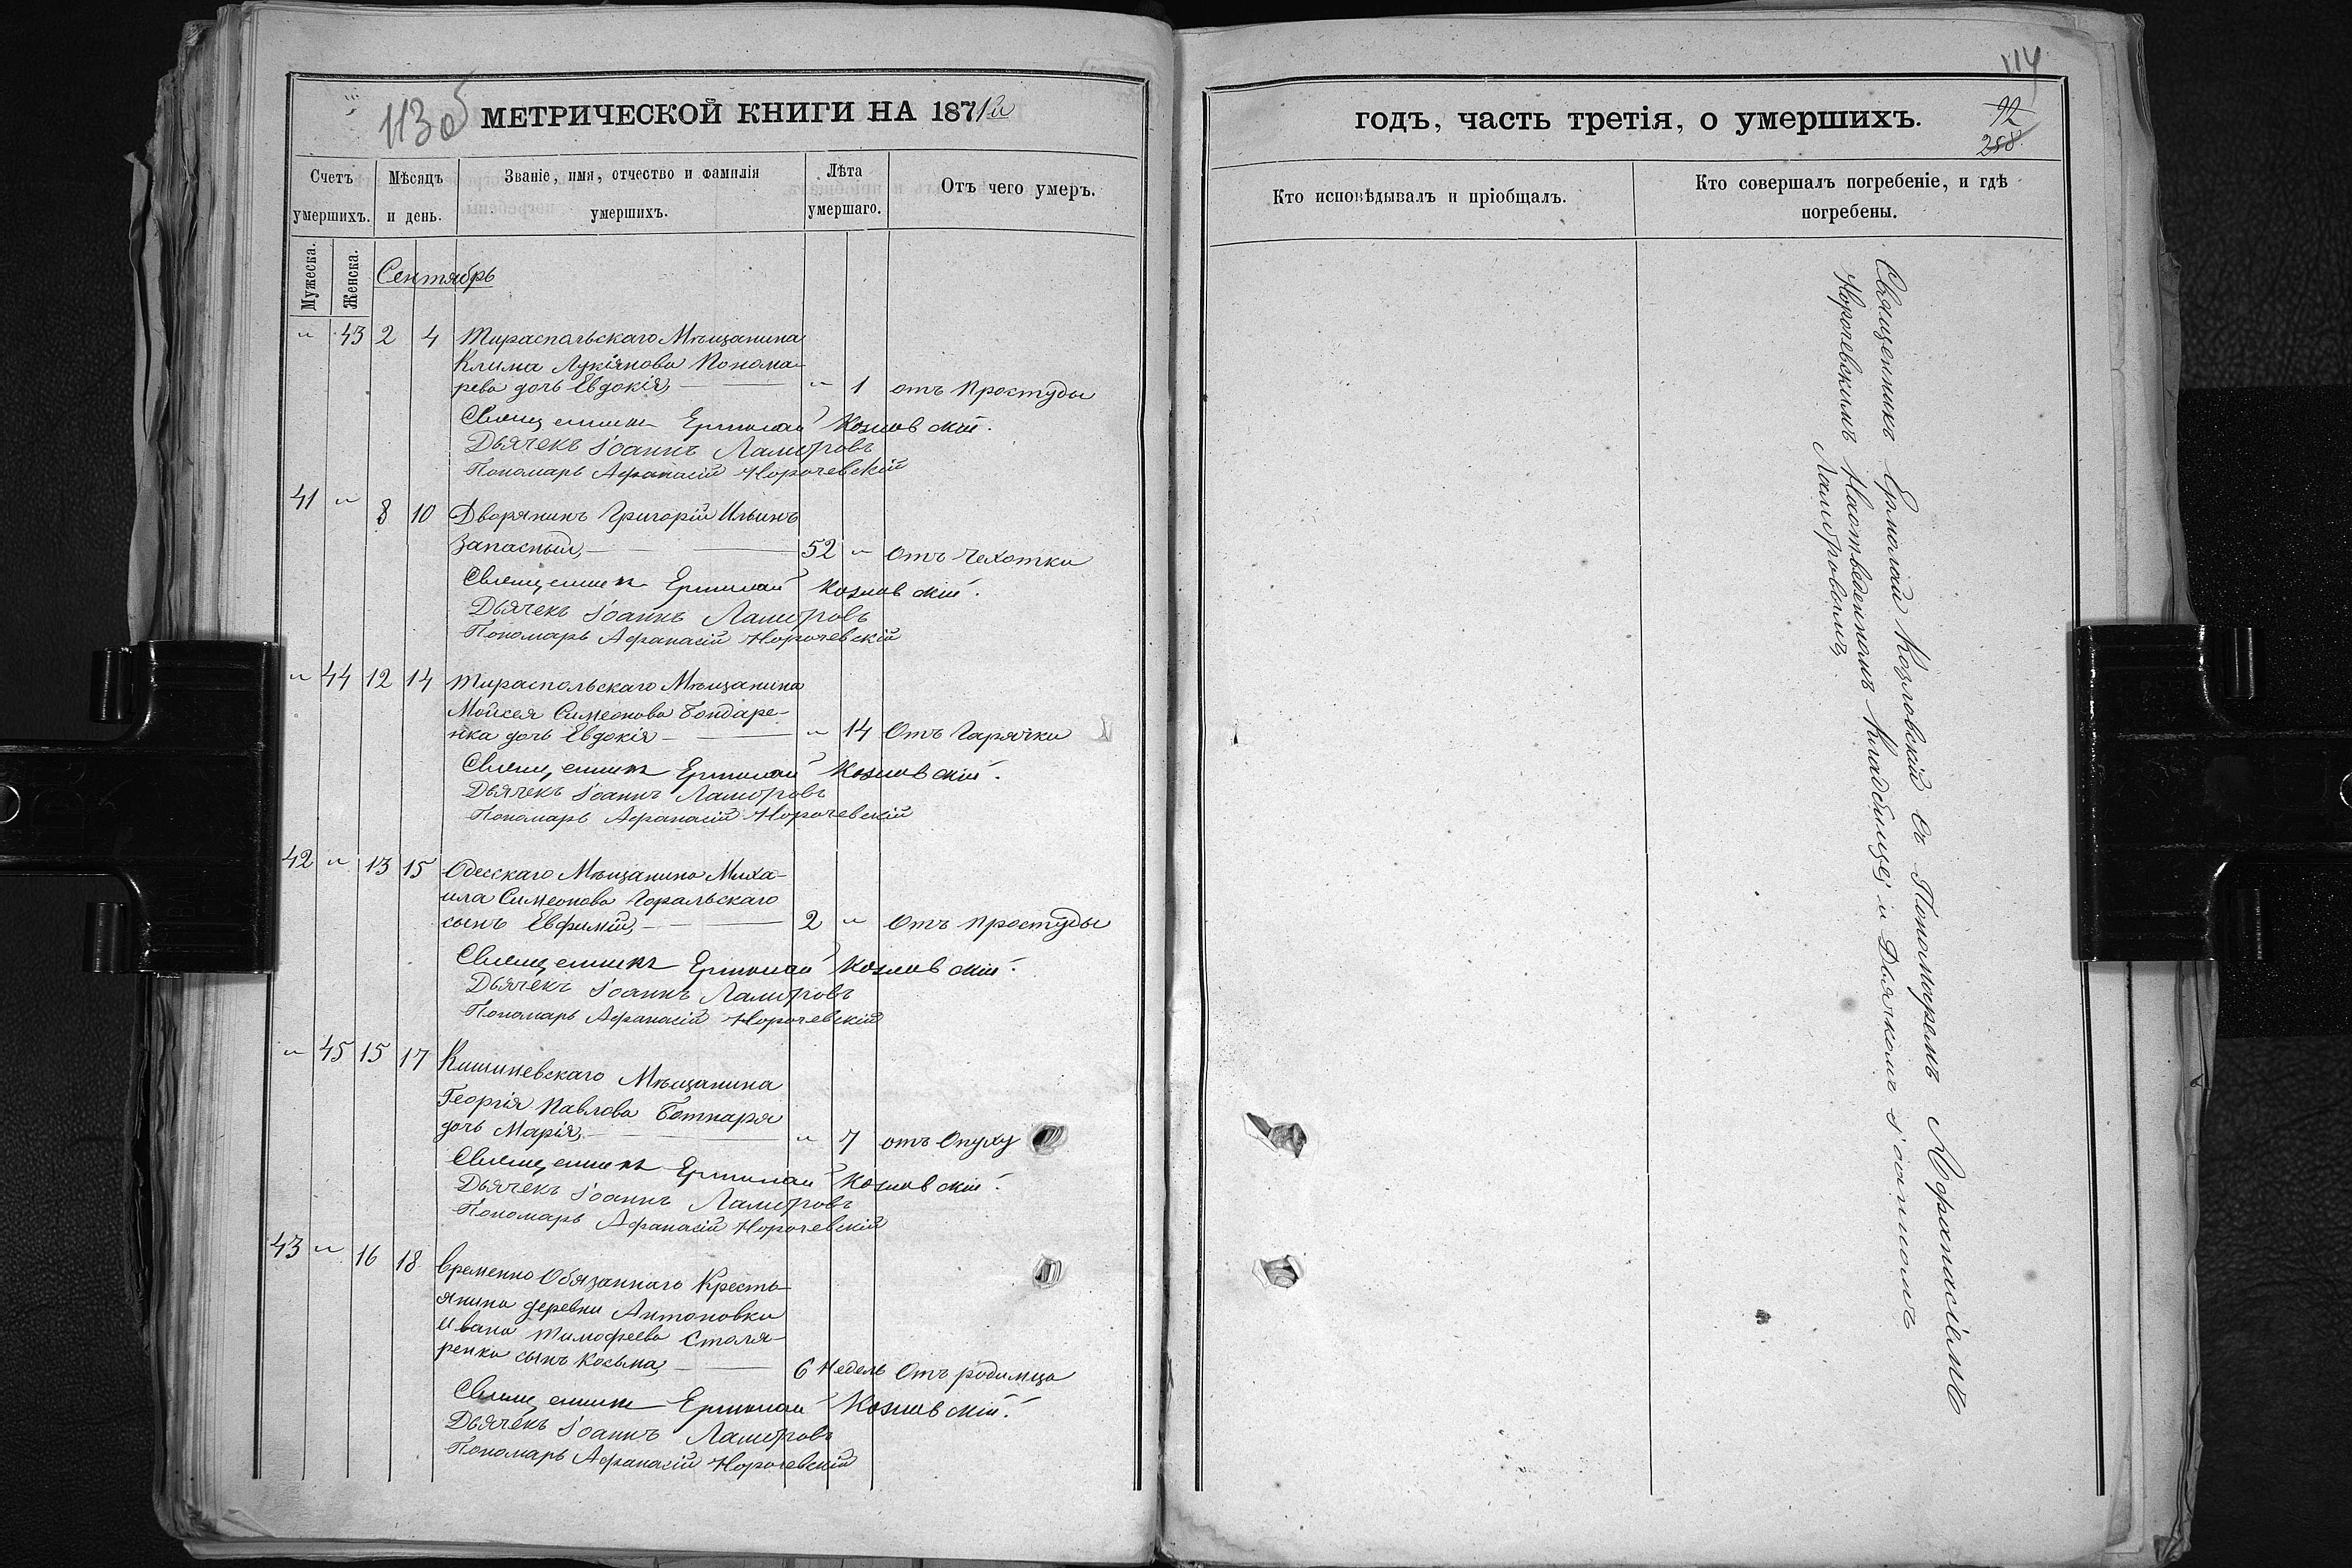 113 об
МЕТРИЧЕСКОЙ КНИГИ НА 1871й
Счетъ умершихъ.
Мѣсяцъ и день.
Званіе, имя, отчество и фамилія умершихъ.
Лѣта умершаго.
Отъ чего умеръ.
Мужеска.
Женска.
Сентябрь
" 43 2 4 Тираспольскаго Мѣщанина
Клима Лукіянова Понома-
рева дочь Евдокія, — " 1 отъ Простуды
Священникъ Ермолай Козловскій.
Дьячекъ Іоаннъ Ламбровъ
Пономарь Афанасій Корочевскій
41 " 8 10 Дворянинъ Григорій Ильинъ
Запасный, — 52 " Отъ Чехотки
Священникъ Ермолай Козловскій.
Дьячекъ Іоаннъ Ламбровъ
Пономарь Афанасій Корочевскій
" 44 12 14 Тираспольскаго Мѣщанина
Мойсея Симеонова Бондаре-
нка дочь Евдокія — " 14 Отъ Гарячки
Священникъ Ермолай Козловскій.
Дьячекъ Іоаннъ Ламбровъ
Пономарь Афанасій Корочевскій
42 " 13 15 Одесскаго Мѣщанина Миха-
ила Симеонова Горальскаго
сынъ Евфимій, — 2 " Отъ простуды
Священникъ Ермолай Козловскій.
Дьячекъ Іоаннъ Ламбровъ
Пономарь Афанасій Корочевскій
" 45 15 17 Кишиневскаго Мѣщанина
Георгія Павлова Ботнаря
дочь Марія, — " 7 отъ Опуху
Священникъ Ермолай Козловскій.
Дьячекъ Іоаннъ Ламбровъ
Пономарь Афанасій Корочевскій
43 " 16 18 Временно Обязаннаго Кресть-
янина деревни Антоновки
Ивана Тимофеева Столя-
ренка сынъ Козьма, — 6 Недель Отъ родимца
Священникъ Ермолай Козловскій.
Дьячекъ Іоаннъ Ламбровъ
Пономарь Афанасій Корочевскій
114
годъ, часть третія, о умершихъ.
92
258
Кто исповѣдывалъ и пріобщалъ.
Кто совершалъ погребеніе, и гдѣ
погребены.
Священникъ Ермолай Козловскій съ Пономаремъ Афанасіемъ
Корочевскимъ на отведенномъ Кладбищѣ, и Дьячкомъ Іоанномъ
Ламбровымъ